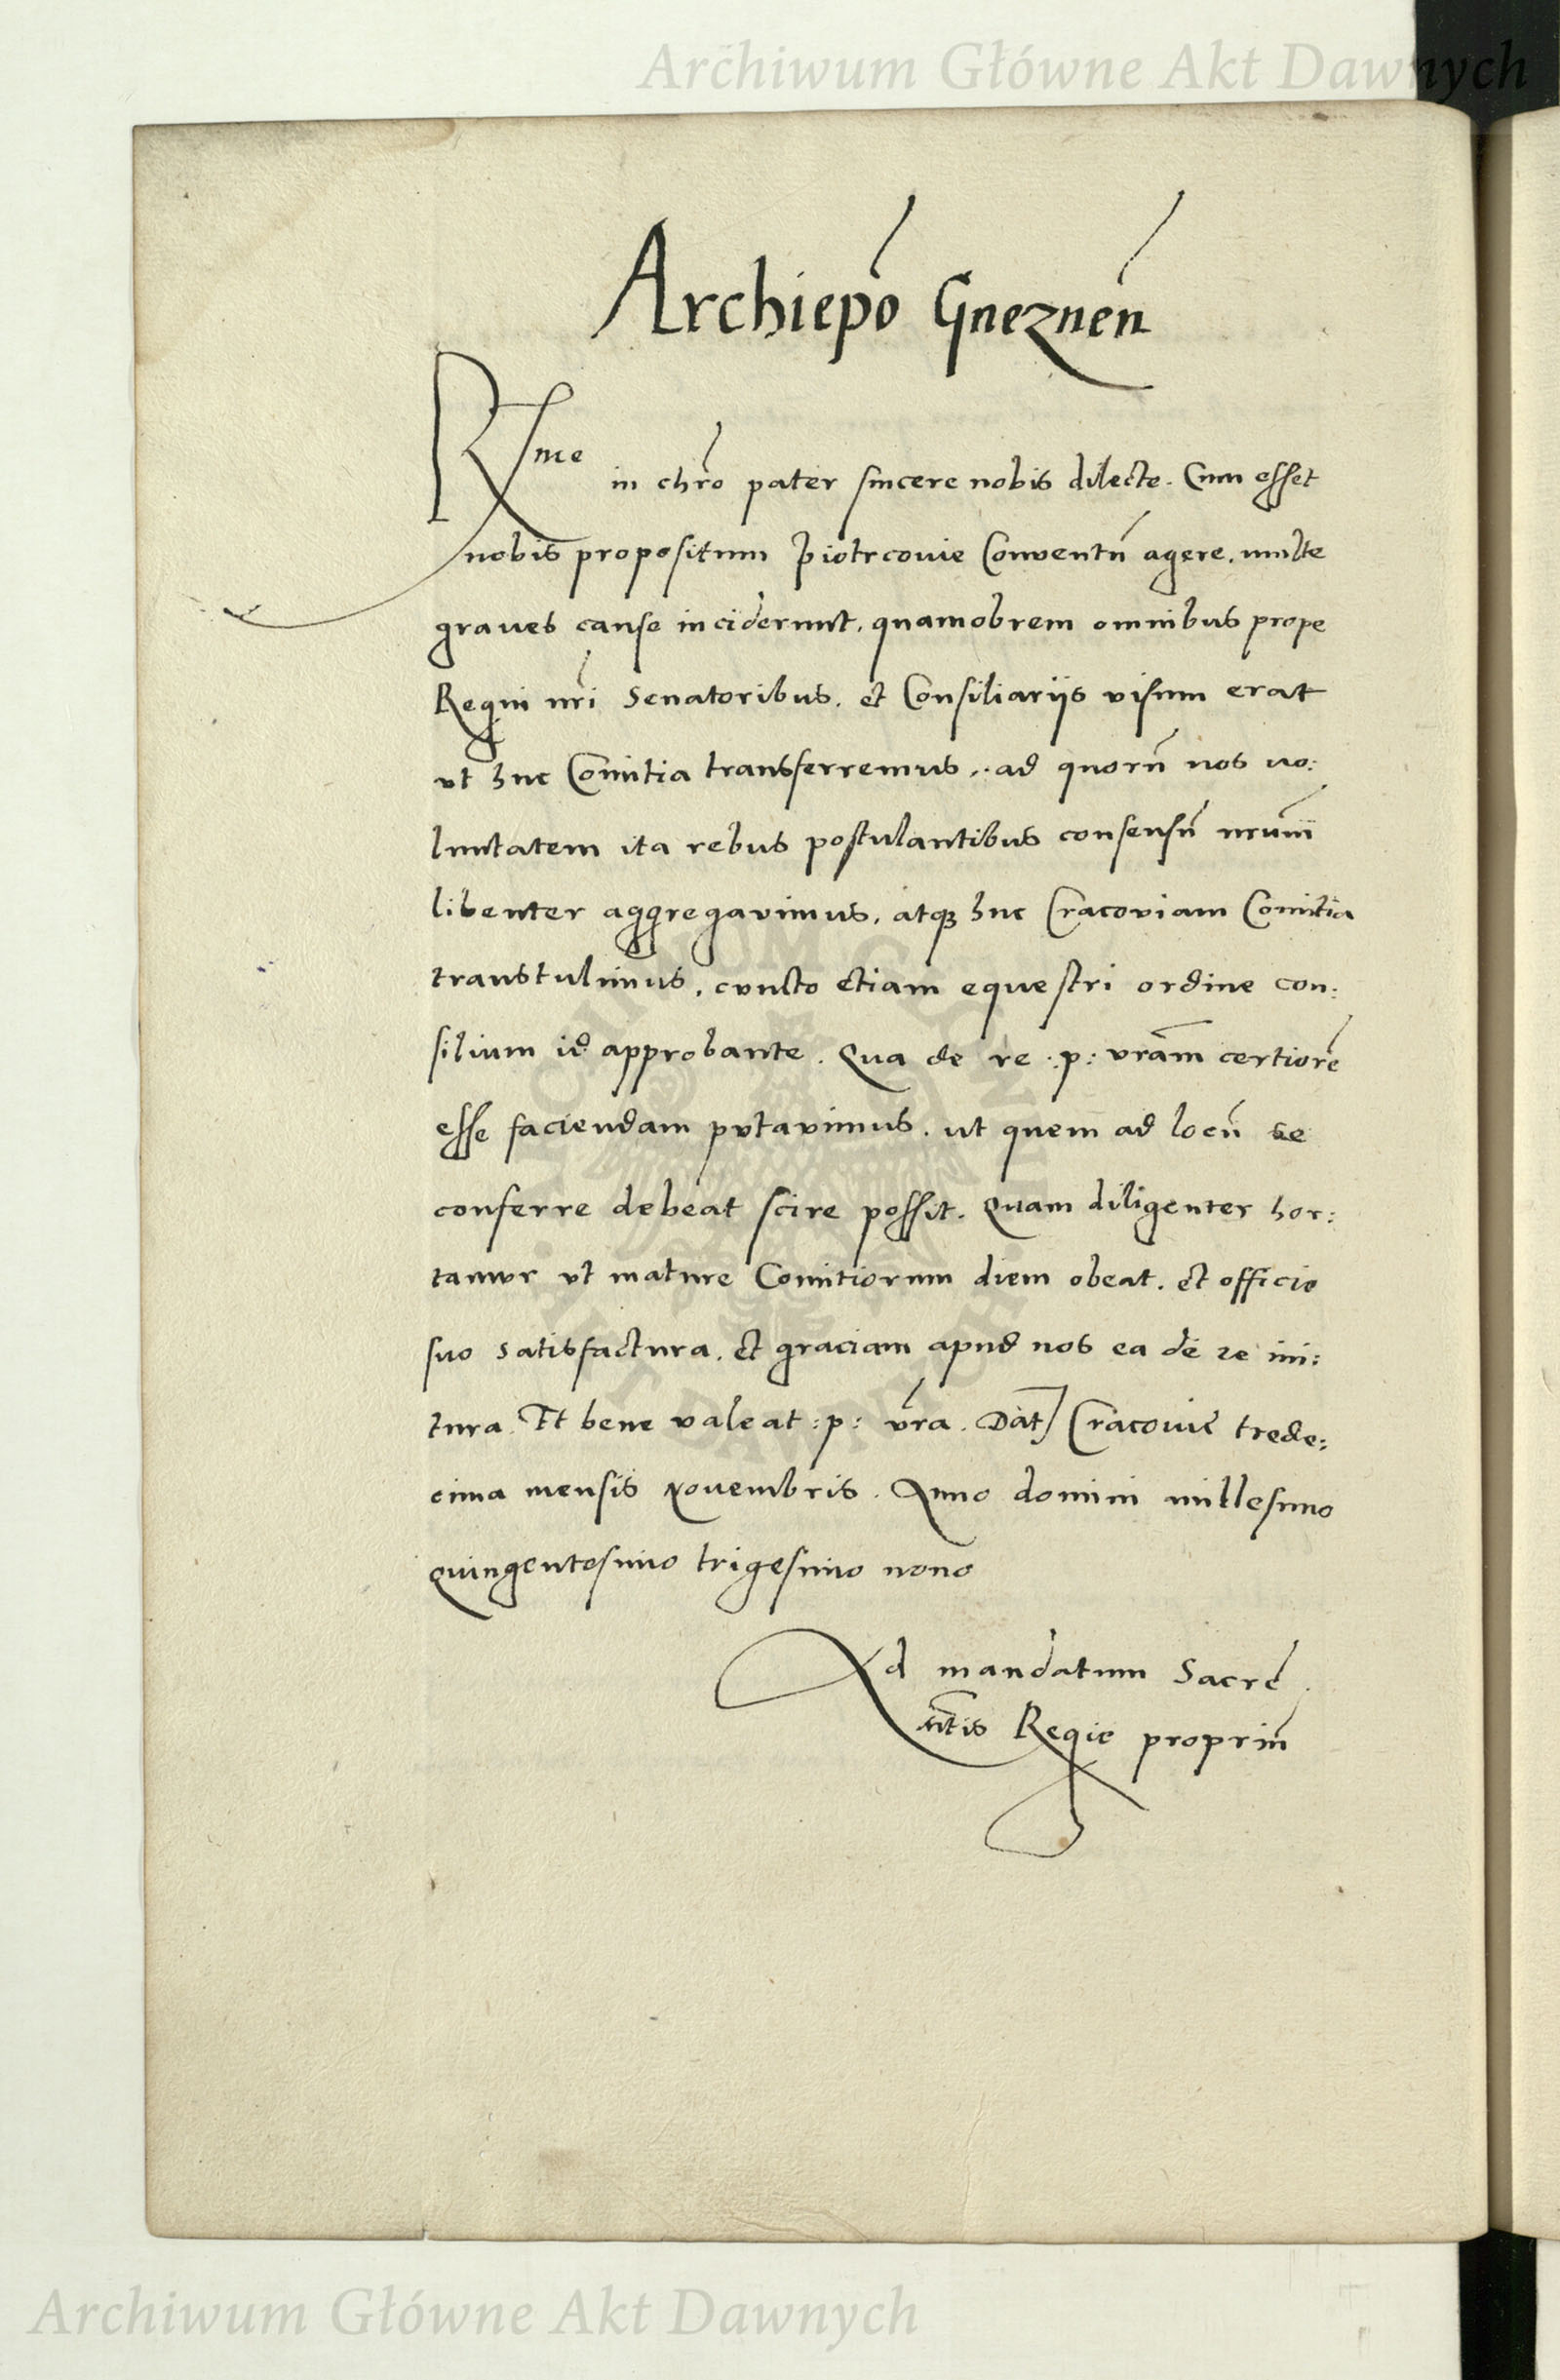 Archiwum Główne Akt Dawnych
Archiepo Gneznen
Rme in chro pater sincere nobis dilecte. Cum esset
nobis propositum Piotrcovie Conventu agere, multe
graves cause inciderunt, quamobrem omnibus prope
Regni nri Senatoribus, et Consiliariis visum erat
ut huc Comitia transferremus, ad quoru nos vo:
luntatem ita rebus postulantibus consensu nrum
libenter aggregavimus, atq huc Cracoviam Comitia
transtulimus, cuncto etiam equestri ordine con:
silium id approbante. Qua de re :p: vram certiore
esse faciendam putavimus, ut quem ad locu se
conferre debeat scire possit. Quam diligenter hor:
tamur ut mature Comitiorum diem obeat, et officio
suo satisfactura, et graciam apud nos ea de re ini:
tura. Et bene valeat :p: vra. Dat Cracovie trede:
cima mensis Novembris. Anno domini millesimo
quingentesimo trigesimo nono
Ad mandatum Sacre
mtis Regie propriu
Archiwum Główne Akt Dawnych